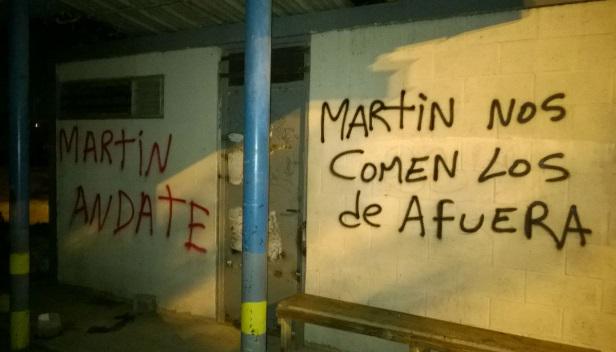 MARtiN
ANDAtE
MARtiN NOS
COMEN LOS
de AFUERA